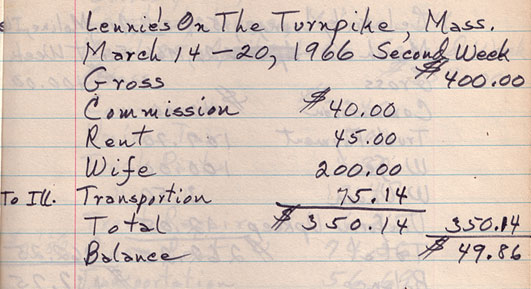 Lennie's On The Turnpike, Mass.
March 14-20, 1966 Second Week
Gross $400.00
Commission $40.00
Rent 45.00
Wife 200.00
To Ill. Transportion 75.14
Total $350.14 350.14
Balance $49.86